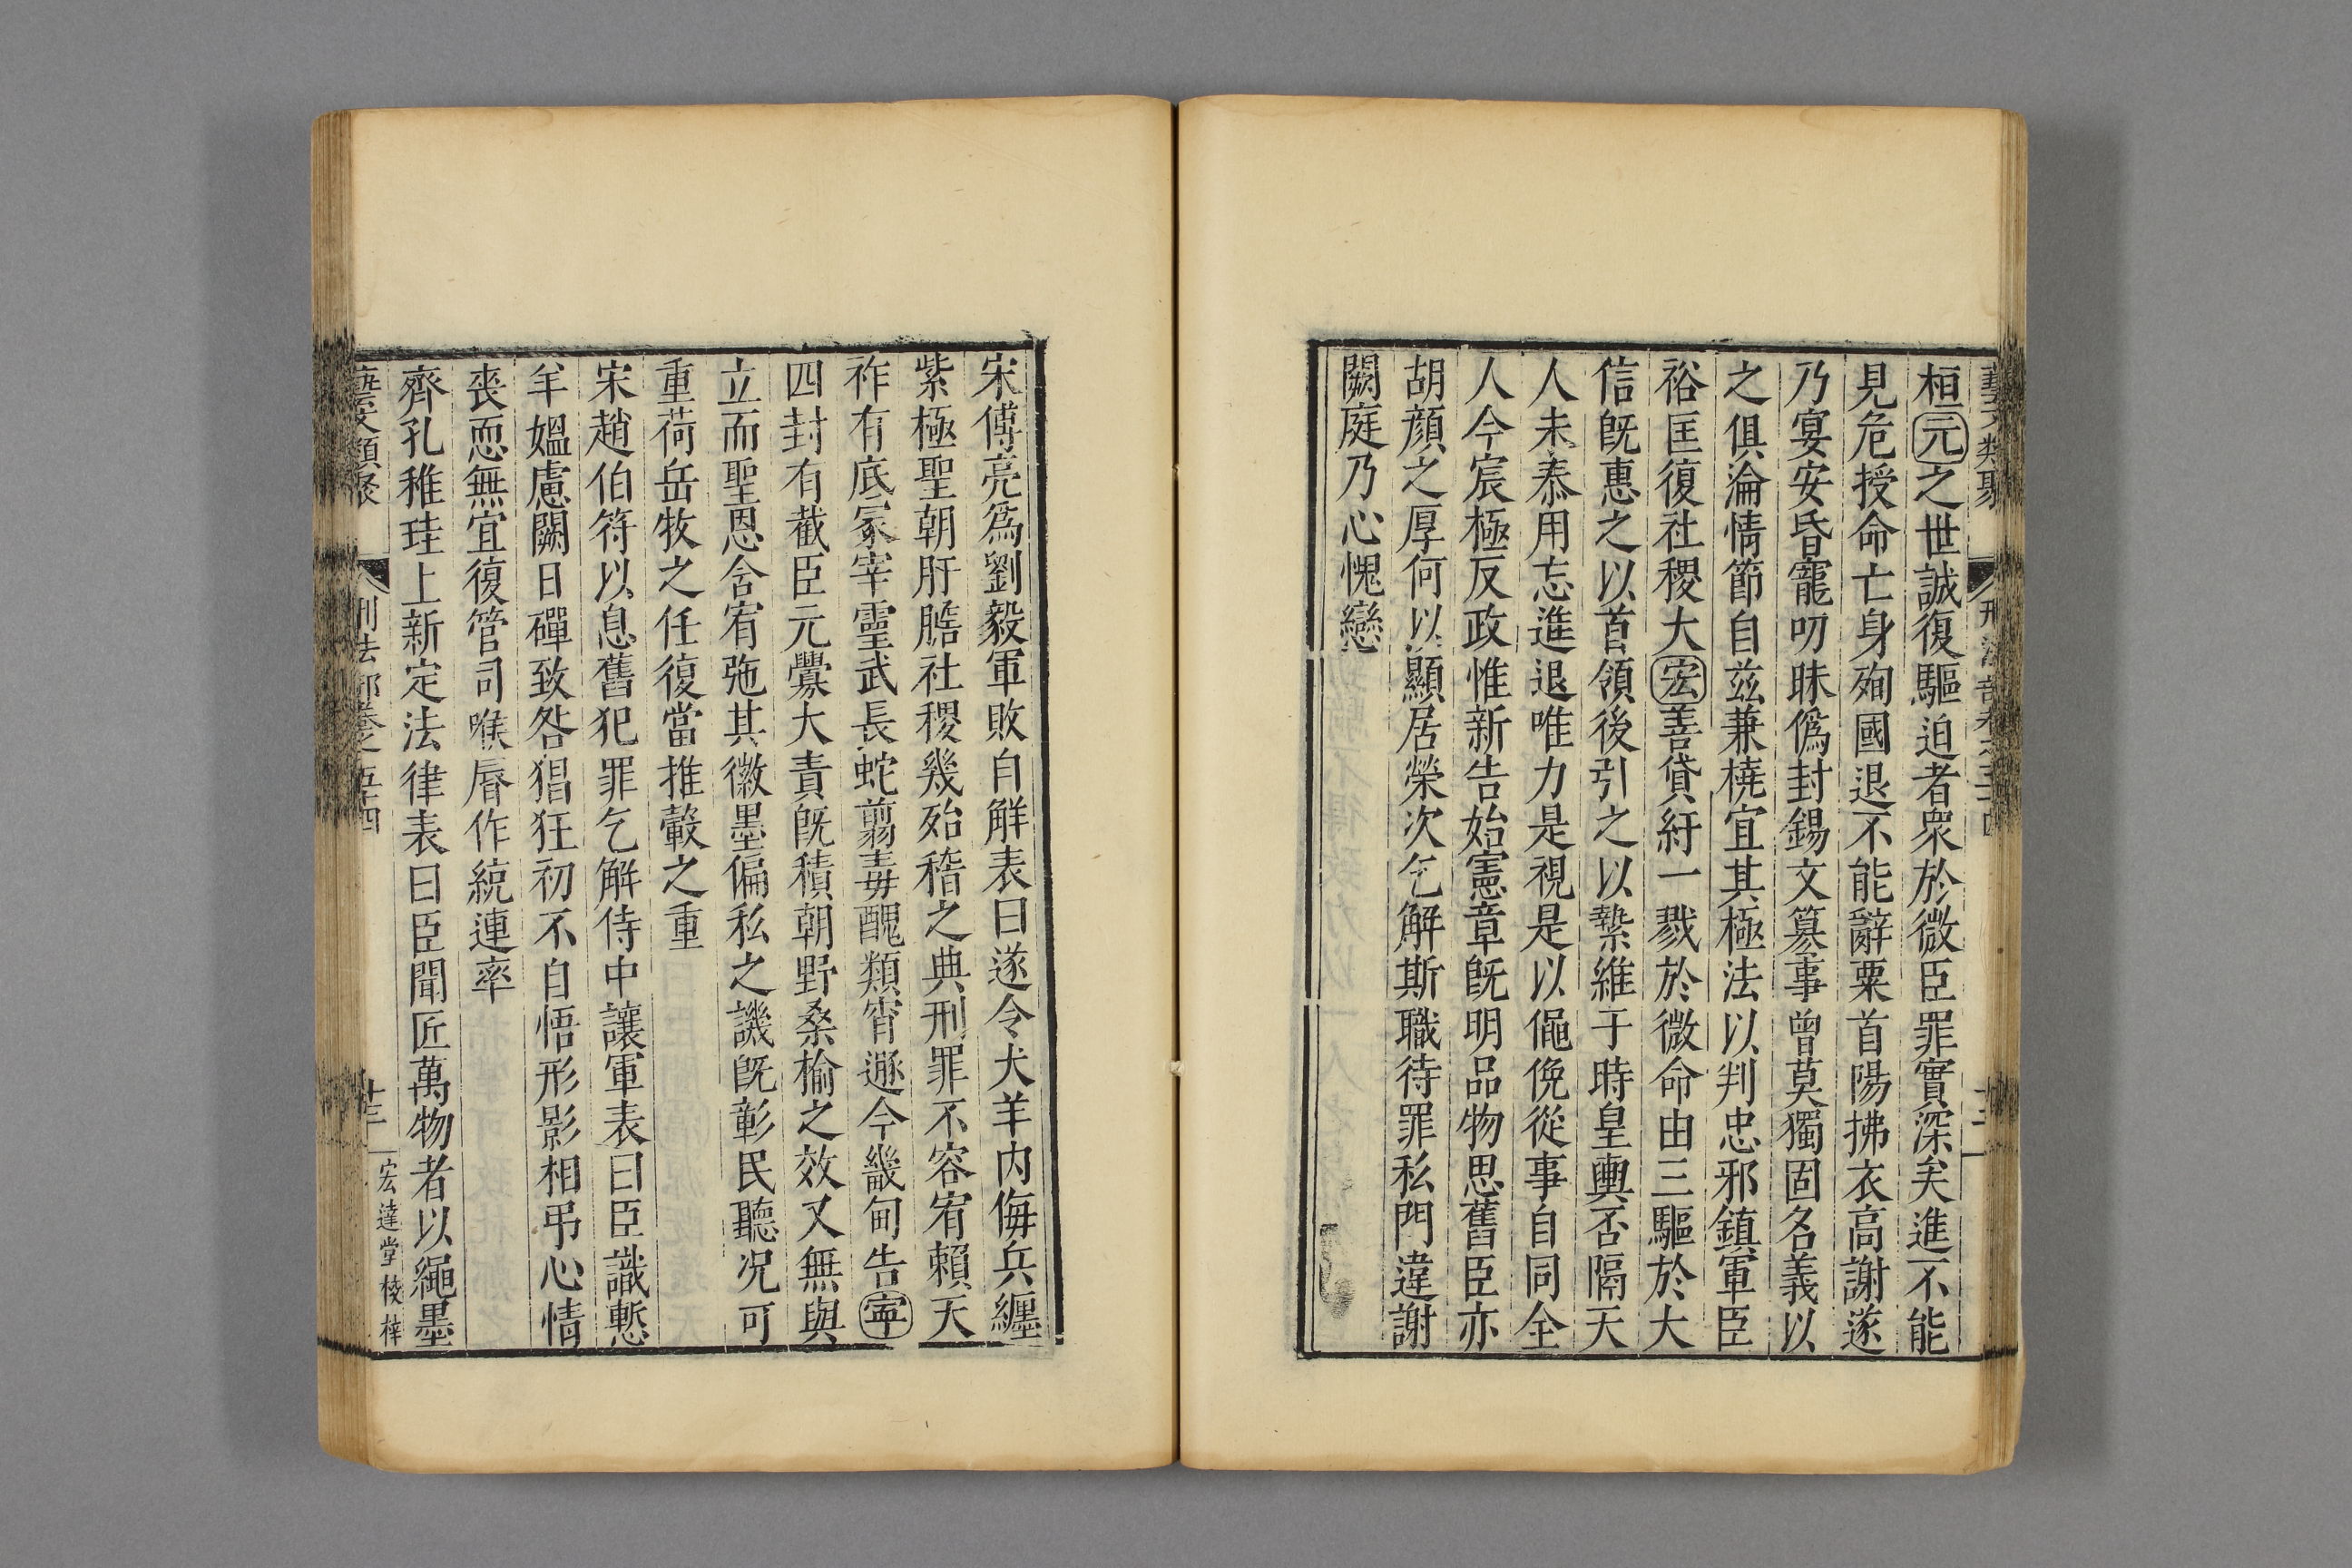 藝文類聚 刑法部卷之五十四 十二
桓元之世誠復驅迫者衆於微臣罪實深矣進不能
見危授命亡身殉國退不能辭粟首陽拂衣高謝遂
乃宴安昏寵叨昧僞封錫文篡事曾莫獨固名義以
之俱淪情節自兹兼橈宜其極法以判忠邪鎮軍臣
裕匡復社稷大宏善貸紆一戮於微命由三驅於大
信旣惠之以首領後引之以縶維于時皇輿否隔天
人未泰用忘進退唯力是視是以僶俛從事自同全
人今宸極反政惟新告始憲章旣明品物思舊臣亦
胡顔之厚何以顯居榮次乞解斯職待罪私門違謝
闕庭乃心愧戀
宋傅亮爲劉毅軍敗自解表曰遂令犬羊內侮兵纏
紫極聖朝肝膳社稷幾殆稽之典刑罪不容宥賴天
祚有底冢宰靈武長蛇翦毒醜類宵遯今畿甸告寕
四封有截臣元釁大責旣積朝野桑榆之效又無與
立而聖恩含宥弛其徽墨偏私之譏旣彰民聽况可
重荷岳牧之任復當推轂之重
宋趙伯符以息舊犯罪乞解侍中讓軍表曰臣識慙
羊媪慮闕日磾致咎猖狂初不自悟形影相弔心情
喪恧無宜復管司喉脣作統連率
齊孔稚珪上新定法律表曰臣聞匠萬物者以繩墨
藝文類聚 刑法部卷之五十四 十三 宏達堂校梓